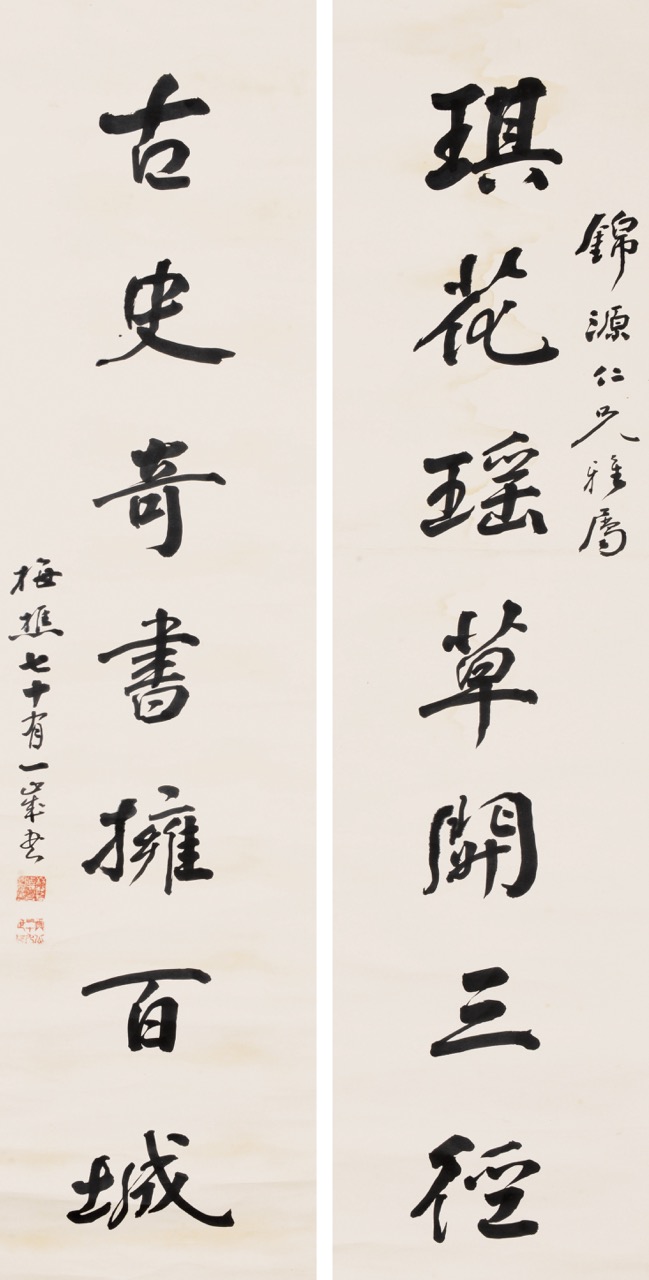 錦源仁兄雅屬
琪花瑶草開三徑
古史奇書擁百城
梅樵七十有一歲書